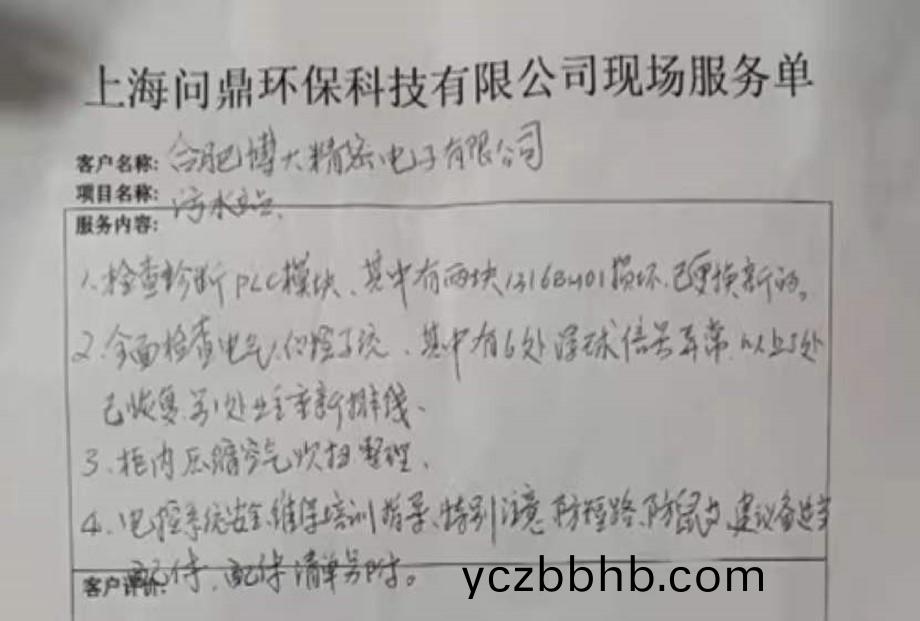 上海问鼎环保科技有限公司现场服务单
客户名称: 合肥博大精密电子有限公司
项目名称: 污水站
服务内容:
1、检查诊断PLC模块、其中有两块1316BM01损坏.已更换新的。
2、全面检查电气、仪控系统、其中有6处浮球信号异常.以上5处
已恢复.另1处业主重新排线、
3、柜内压缩空气吹扫整理、
4、电控系统安全、维保培训指导、特别注意防短路、防鼠、建议备适当
配件、配件清单另附。
客户评价:
yczbbhb.com